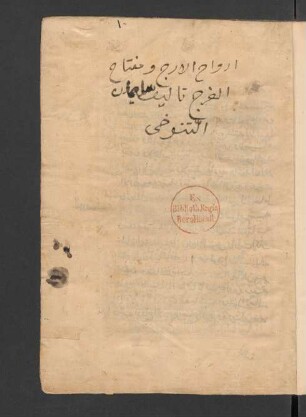 ارواح الارج ومفتاح
الفرج تاليف
التنوخى
Ex
Biblioth. Regia
Berolinensi